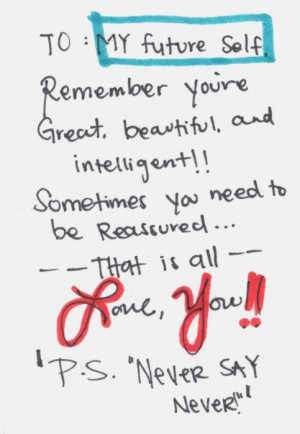 TO : MY future Self.
Remember you're
Great, beautiful, and
intelligent!!
Sometimes you need to
be Reassured...
-- THat is all --
Love, You!!
'P.S. "Never SAY
Never!"'